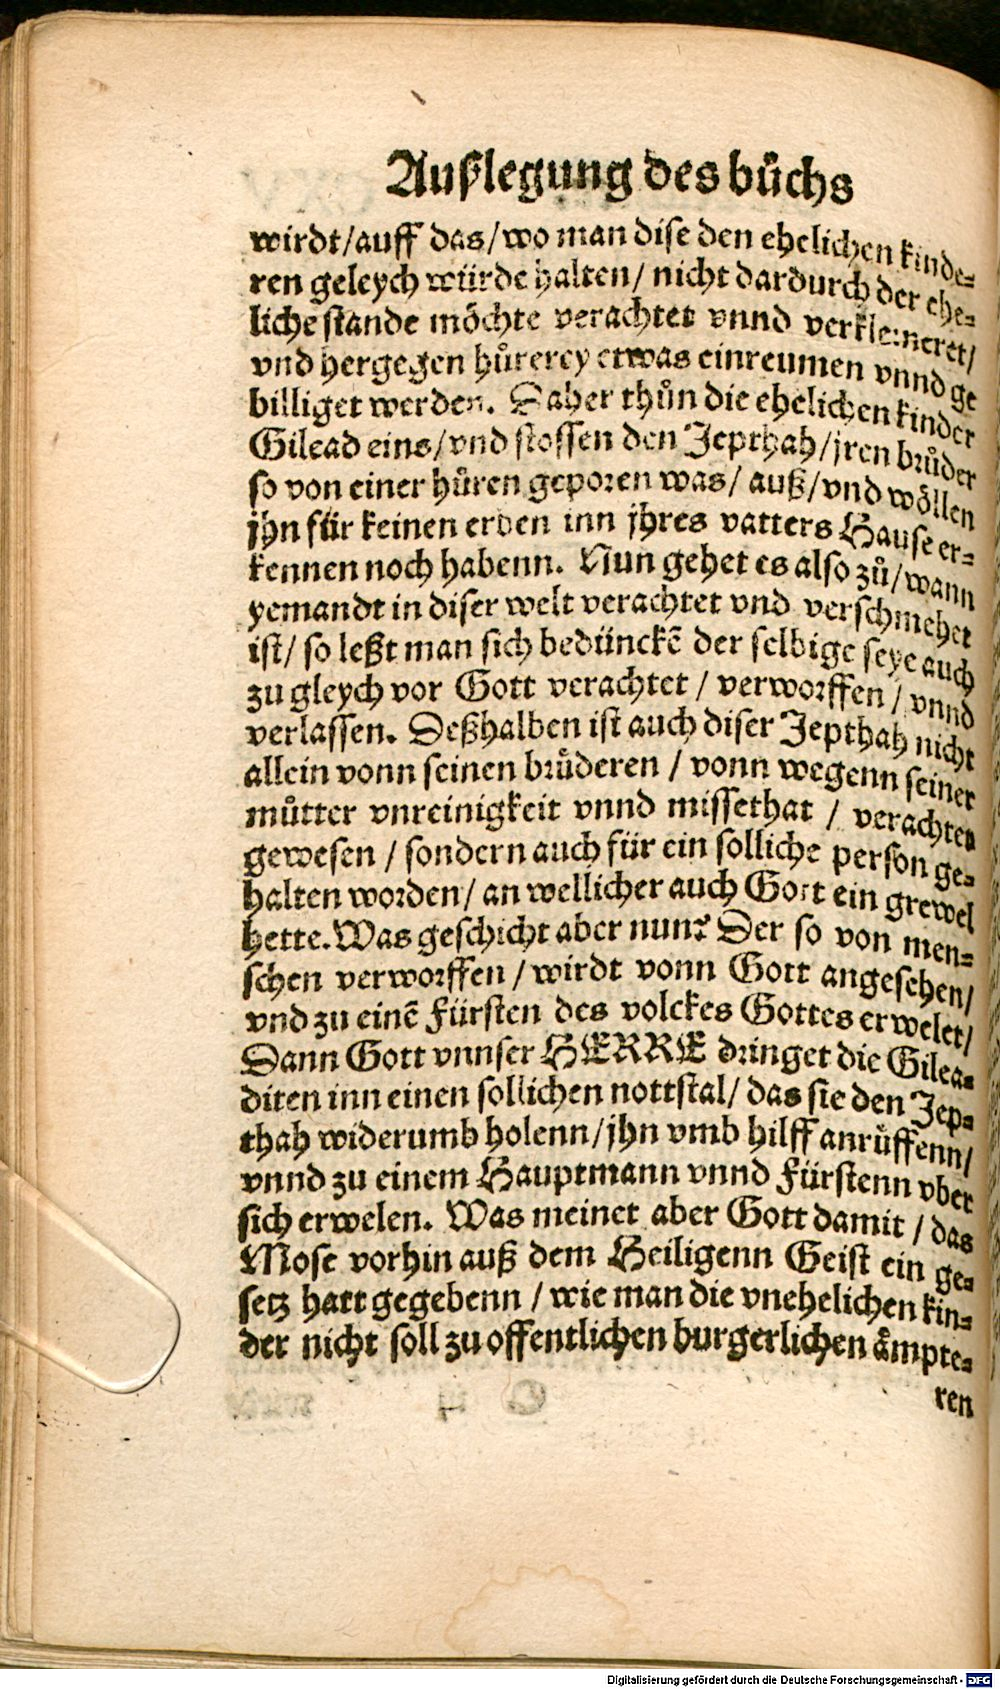 Außlegung des bůchs
wirdt/auff das/wo man dise den ehelichen kinde⸗
ren geleych würde halten/ nicht dardurch der ehe⸗
liche stande möchte verachtet vnnd verkleineret/
vnd hergegen hůrerey etwas einreumen vnnd ge
billiget werden. Daher thůn die ehelichen kinder
Gilead eins/vnd stossen den Jepthah/jren brůder
so von einer hůren geporen was/ auß/vnd wöllen
jhn für keinen erben inn jhres vatters Hause er⸗
kennen noch habenn. Nun gehet es also zů/wann
yemandt in diser welt verachtet vnd verschmehet
ist/ so leßt man sich bedünckē der selbige seye auch
zu gleych vor Gott verachtet / verworffen / vnnd
verlassen. Deßhalben ist auch diser Jepthah nicht
allein vonn seinen brůderen / vonn wegenn seiner
můtter vnreinigkeit vnnd missethat / verachtet
gewesen / sondern auch für ein solliche person ge⸗
halten worden/ an wellicher auch Gott ein grewel
hette. Was geschicht aber nun? Der so von men⸗
schen verworffen / wirdt vonn Gott angesehen/
vnd zu einē Fürsten des volckes Gottes erwelet/
Dann Gott vnnser HERRE dringet die Gilea⸗
diten inn einen sollichen nottstal/ das sie den Jep⸗
thah widerumb holenn/jhn vmb hilff anrůffenn/
vnnd zu einem Hauptmann vnnd Fürstenn vber
sich erwelen. Was meinet aber Gott damit / das
Mose vorhin auß dem Heiligenn Geist ein ge⸗
setz hatt gegebenn / wie man die vnehelichen kin⸗
der nicht soll zu offentlichen burgerlichen åmpte⸗
ren
Digitalisierung gefördert durch die Deutsche Forschungsgemeinschaft - DFG